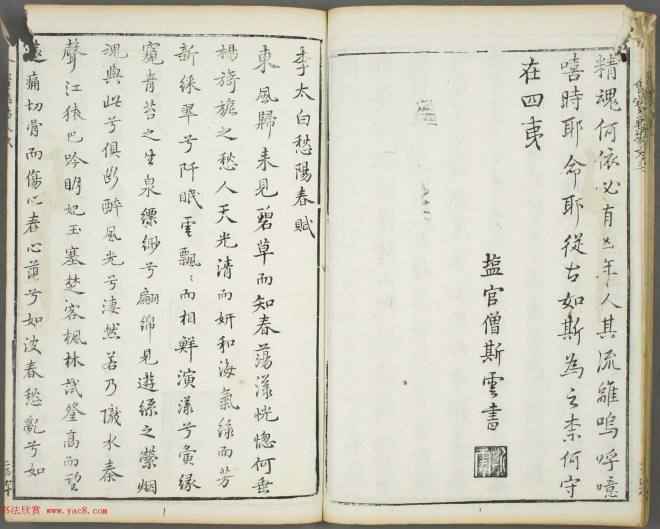 精魂何依必有凶年人其流離嗚呼噫
嘻時耶命耶從古如斯為之柰何守
在四夷
盐官僧斯雲書
李太白愁陽春賦
東風歸來見碧草而知春蕩漾恍惚何垂
楊旖旎之愁人天光清而妍和海氣绿而芳
新綵翠兮阡眠雲飄〻而相鮮演漾兮夤緣
窺青苔之生泉縹緲兮翩綿見遊絲之縈烟
魂與此兮俱斷醉風光兮淒然若乃隴水秦
聲江猿巴吟明妃玉塞楚客楓林試登髙而望
遠痛切骨而傷心春心蕩兮如波春愁亂兮如
书法欣赏 www.yac8.com